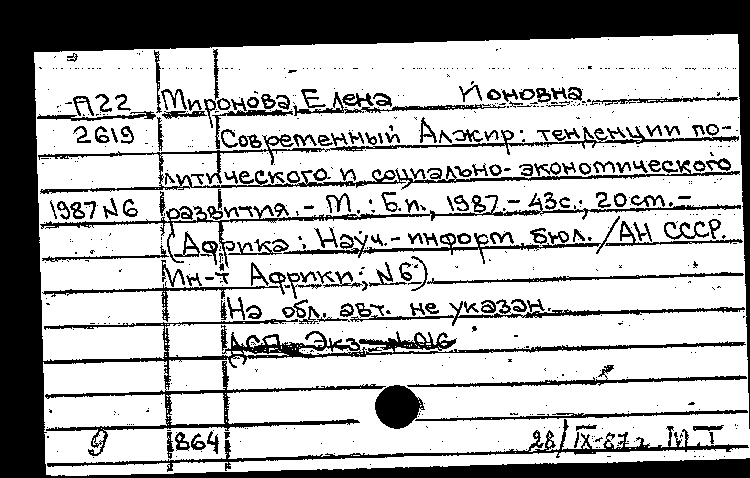 А22 Миронова, Елена Ионовна
2619 Современный Алжир: тенденции по-
литического и социально-экономического
1987 N6 развития. - М.: Б.и., 1987. - 43с.; 20см. -
(Африка: Науч.-информ. бюл. / АН СССР.
Ин-т Африки; N6).
На обл. авт. не указан.
ДСП. Экз. N 016
9 864 28/IX-87г. М.Т.